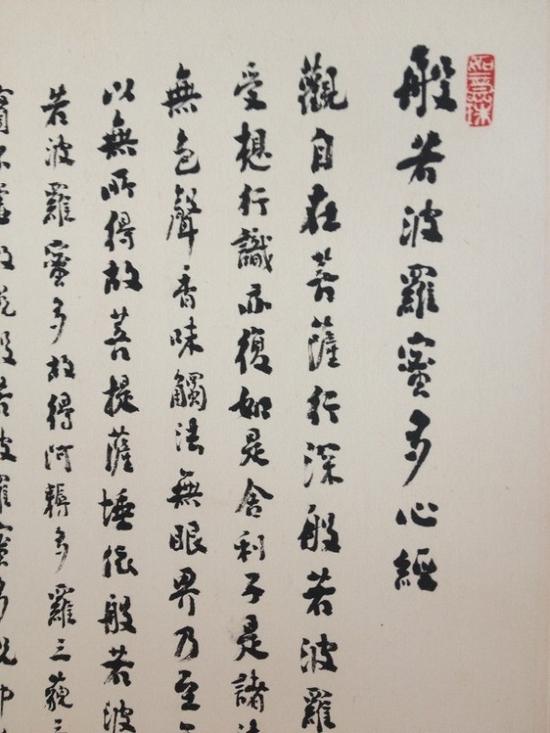 如意珠
般若波羅蜜多心經
觀自在菩薩行深般若波羅
受想行識亦復如是舍利子是諸法
無色聲香味觸法無眼界乃至無
以無所得故菩提薩埵依般若波
若波羅蜜多故得阿耨多羅三藐三
實不虛故說般若波羅蜜多咒即